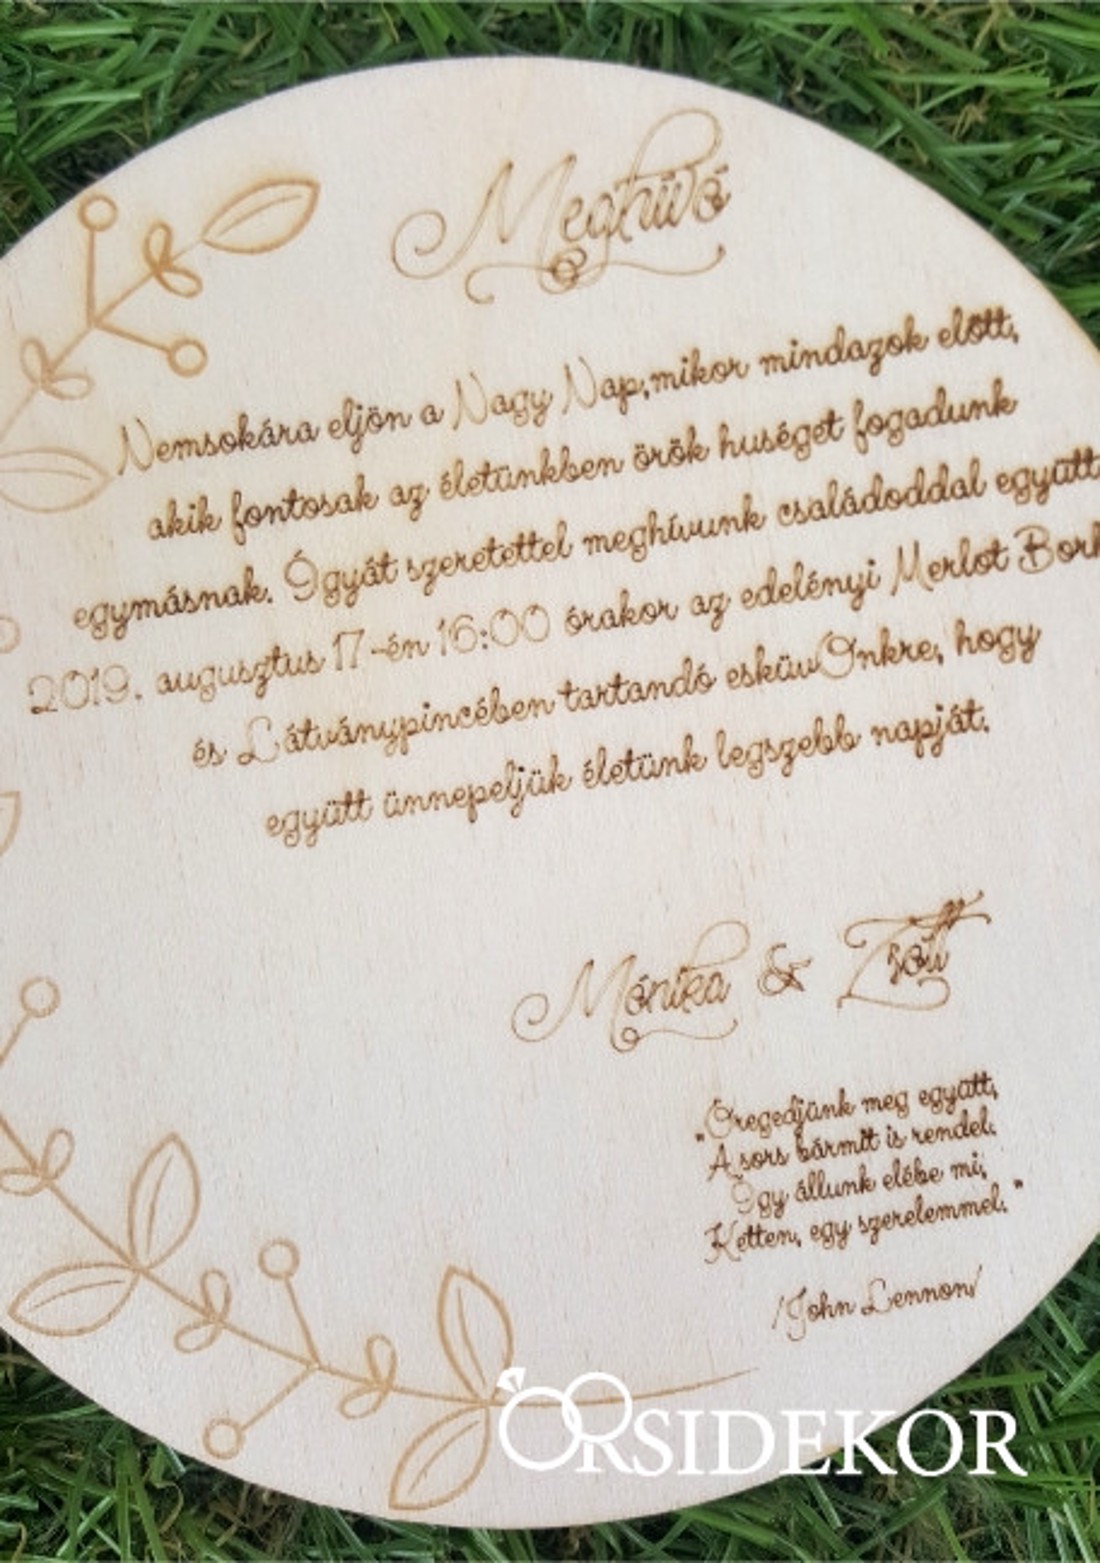 Meghívó
Nemsokára eljön a Nagy Nap, mikor mindazok előtt,
akik fontosak az életünkben örök huséget fogadunk
egymásnak. Ógyát szeretettel meghívunk családoddal együtt
2019. augusztus 17-én 16:00 órakor az edelényi Merlot
és Látványpincében tartandó esküvOnkre, hogy
együtt ünnepeljük életünk legszebb napját.
Mónika & Zsolt
"Öregedjünk meg együtt,
A sors bármit is rendel.
Így állunk elébe mi,
Ketten, egy szerelemmel."
/John Lennon/
ORSIDEKOR